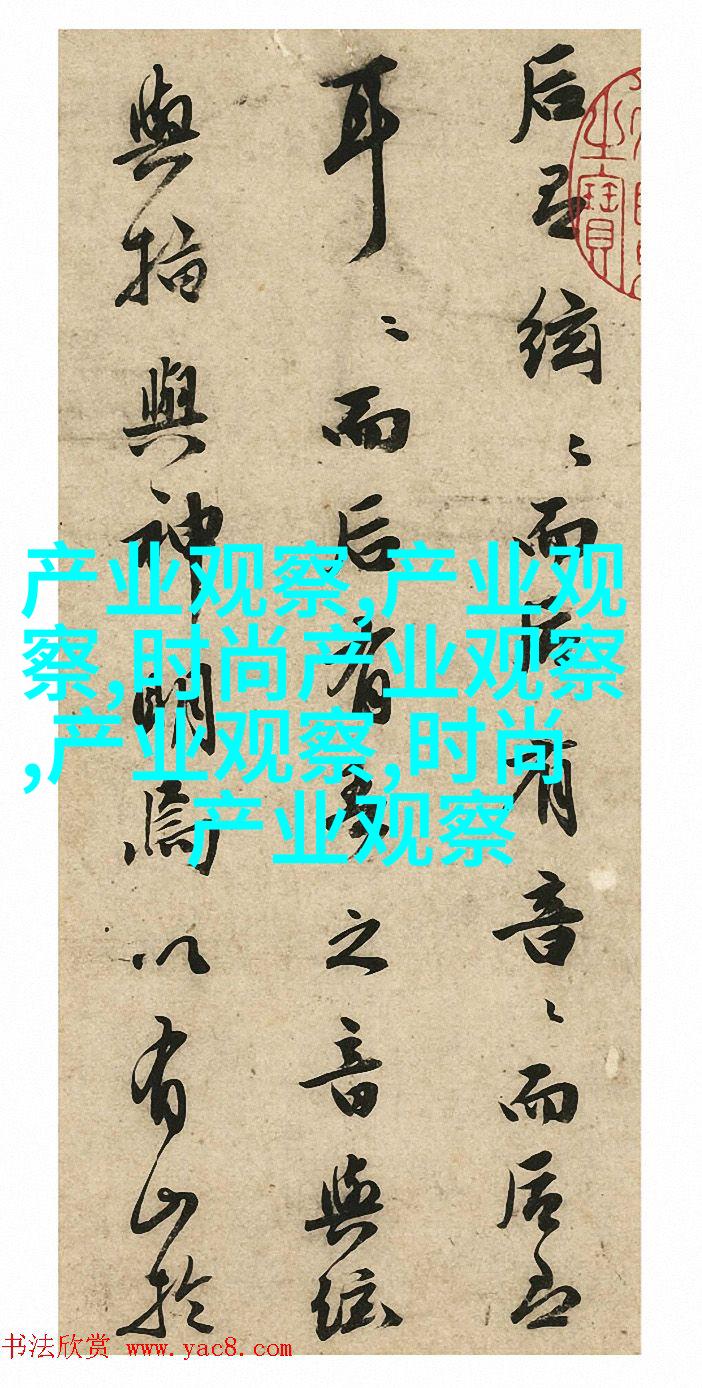 后絃〻而后有音〻而后
耳〻而后有之音與絃
與指與神明焉以有山於
之寶
产业观察,产业观
察,时尚产业观察
,产业观察,时尚
产业观察
书法欣赏 www.yac8.com